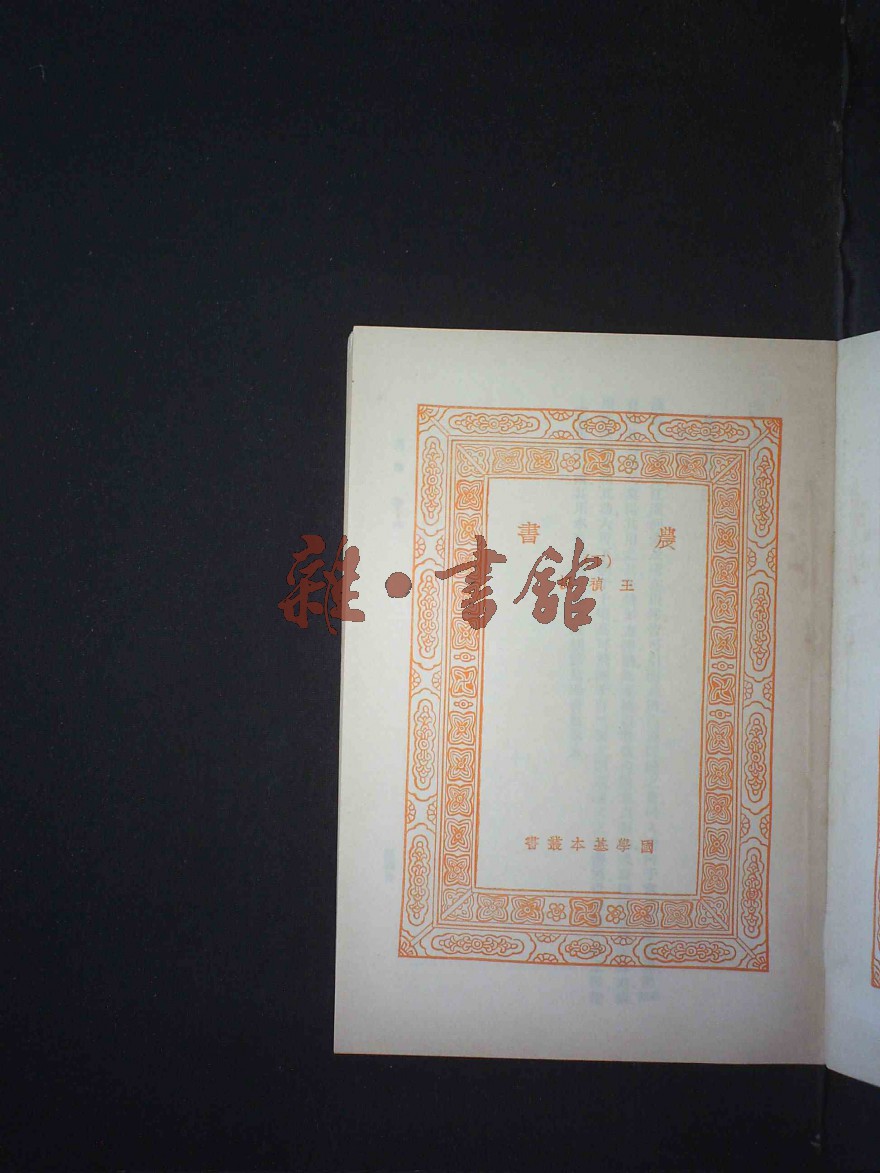 農書
王禎
國學基本叢書
雜·書館